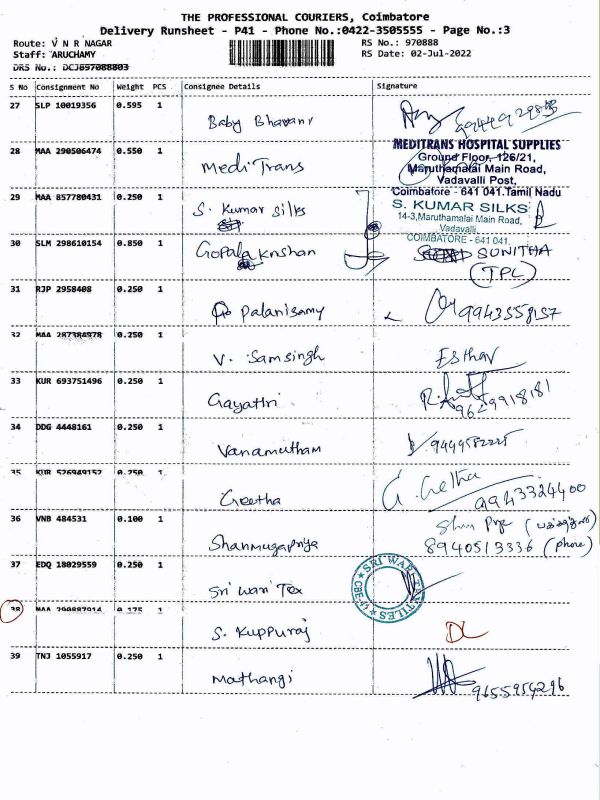 THE PROFESSIONAL COURIERS, Coimbatore
Delivery Runsheet - P41 - Phone No.:0422-3505555 - Page No.:3
Route: V N R NAGAR
RS No.: 970888
Staff: ARUCHAMY
RS Date: 02-Jul-2022
DRS No.: DCJ697088803
S No Consignment No Weight PCS Consignee Details Signature
27 SLP 10019356 0.595 1 Baby Bhavani
28 MAA 290506474 0.550 1 Medi Trans
MEDITRANS HOSPITAL SUPPLIES
Ground Floor, 126/21,
Maruthamalai Main Road,
Vadavalli Post,
Coimbatore - 641 041.Tamil Nadu
29 MAA 857780431 0.250 1 S. Kumar silks
S. KUMAR SILKS
14-3,Maruthamalai Main Road,
Vadavalli,
COIMBATORE - 641 041.
30 SLM 298610154 0.850 1 Gopala krishan SUNITHA
(TPL)
31 RJP 2958408 0.250 1 Palanisamy 9943558157
32 MAA 287384978 0.250 1 V. Samsingh Esthar
33 KUR 693751496 0.250 1 Gayattri 9629918181
34 DDG 4448161 0.250 1 Vanamutham 9449582225
35 KUR 526949152 0.250 1 Geetha G. Geetha
9943324400
36 VNB 484531 0.100 1 Shanmugapriya
8940513336 (Phone)
37 EDQ 18029559 0.250 1 Sri Wari Tex
SRI WARI TEXTILES
38 MAA 290887914 0.175 1 S. Kuppuraj DL
39 TNJ 1055917 0.250 1 Mathangi 9655954296